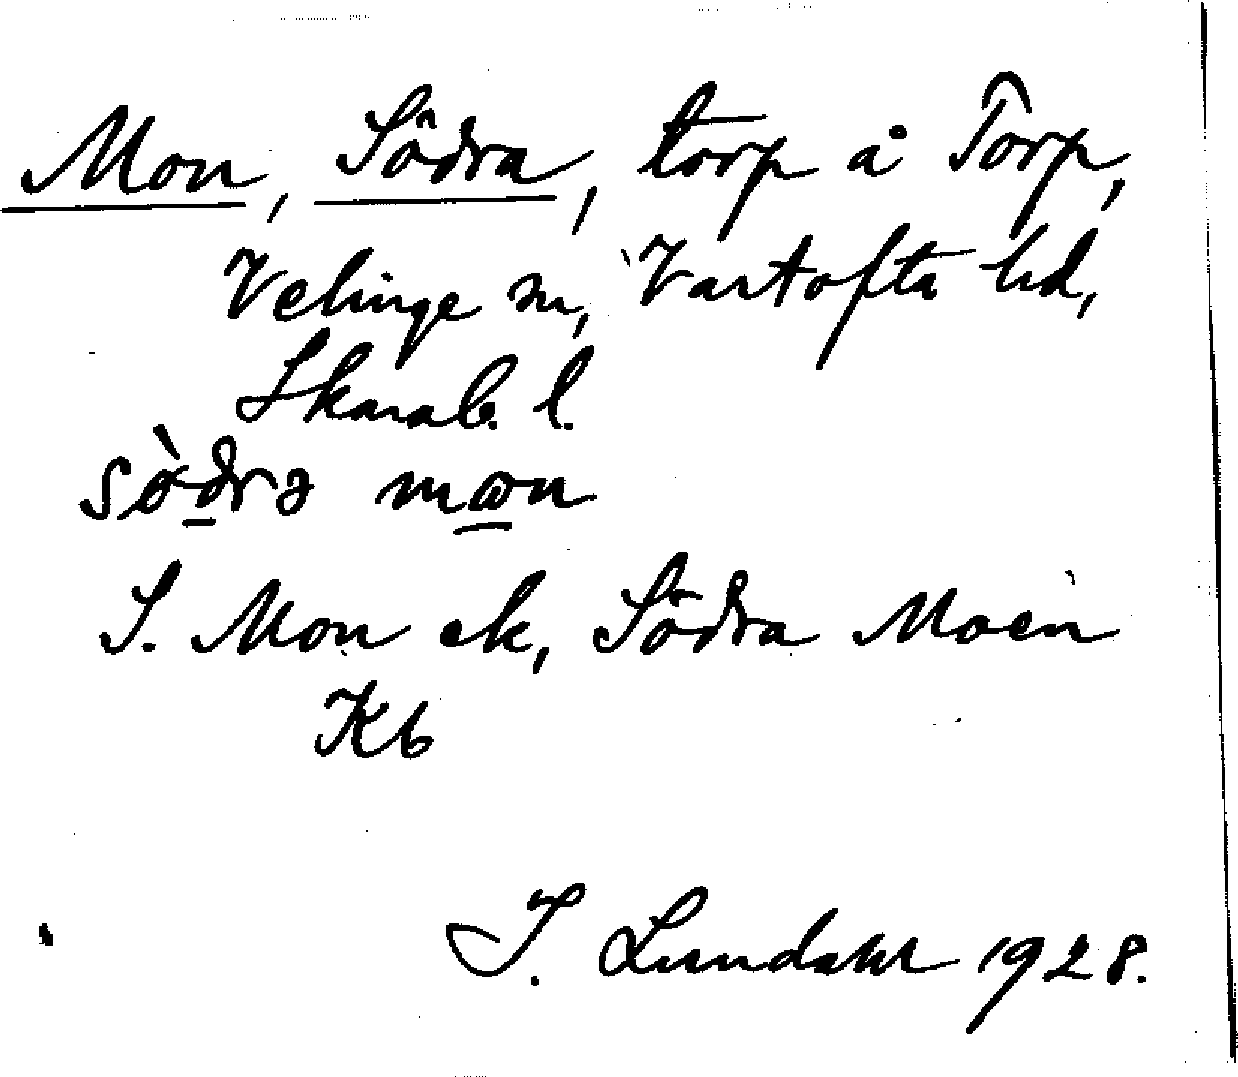 Mon, Södra, torp å Torp,
Velinge sn, Vartofta hd,
Skarab. l.
sö̀drə mɷn
S. Mon ek, Södra Moen
Kb
I. Lundahl 1928.